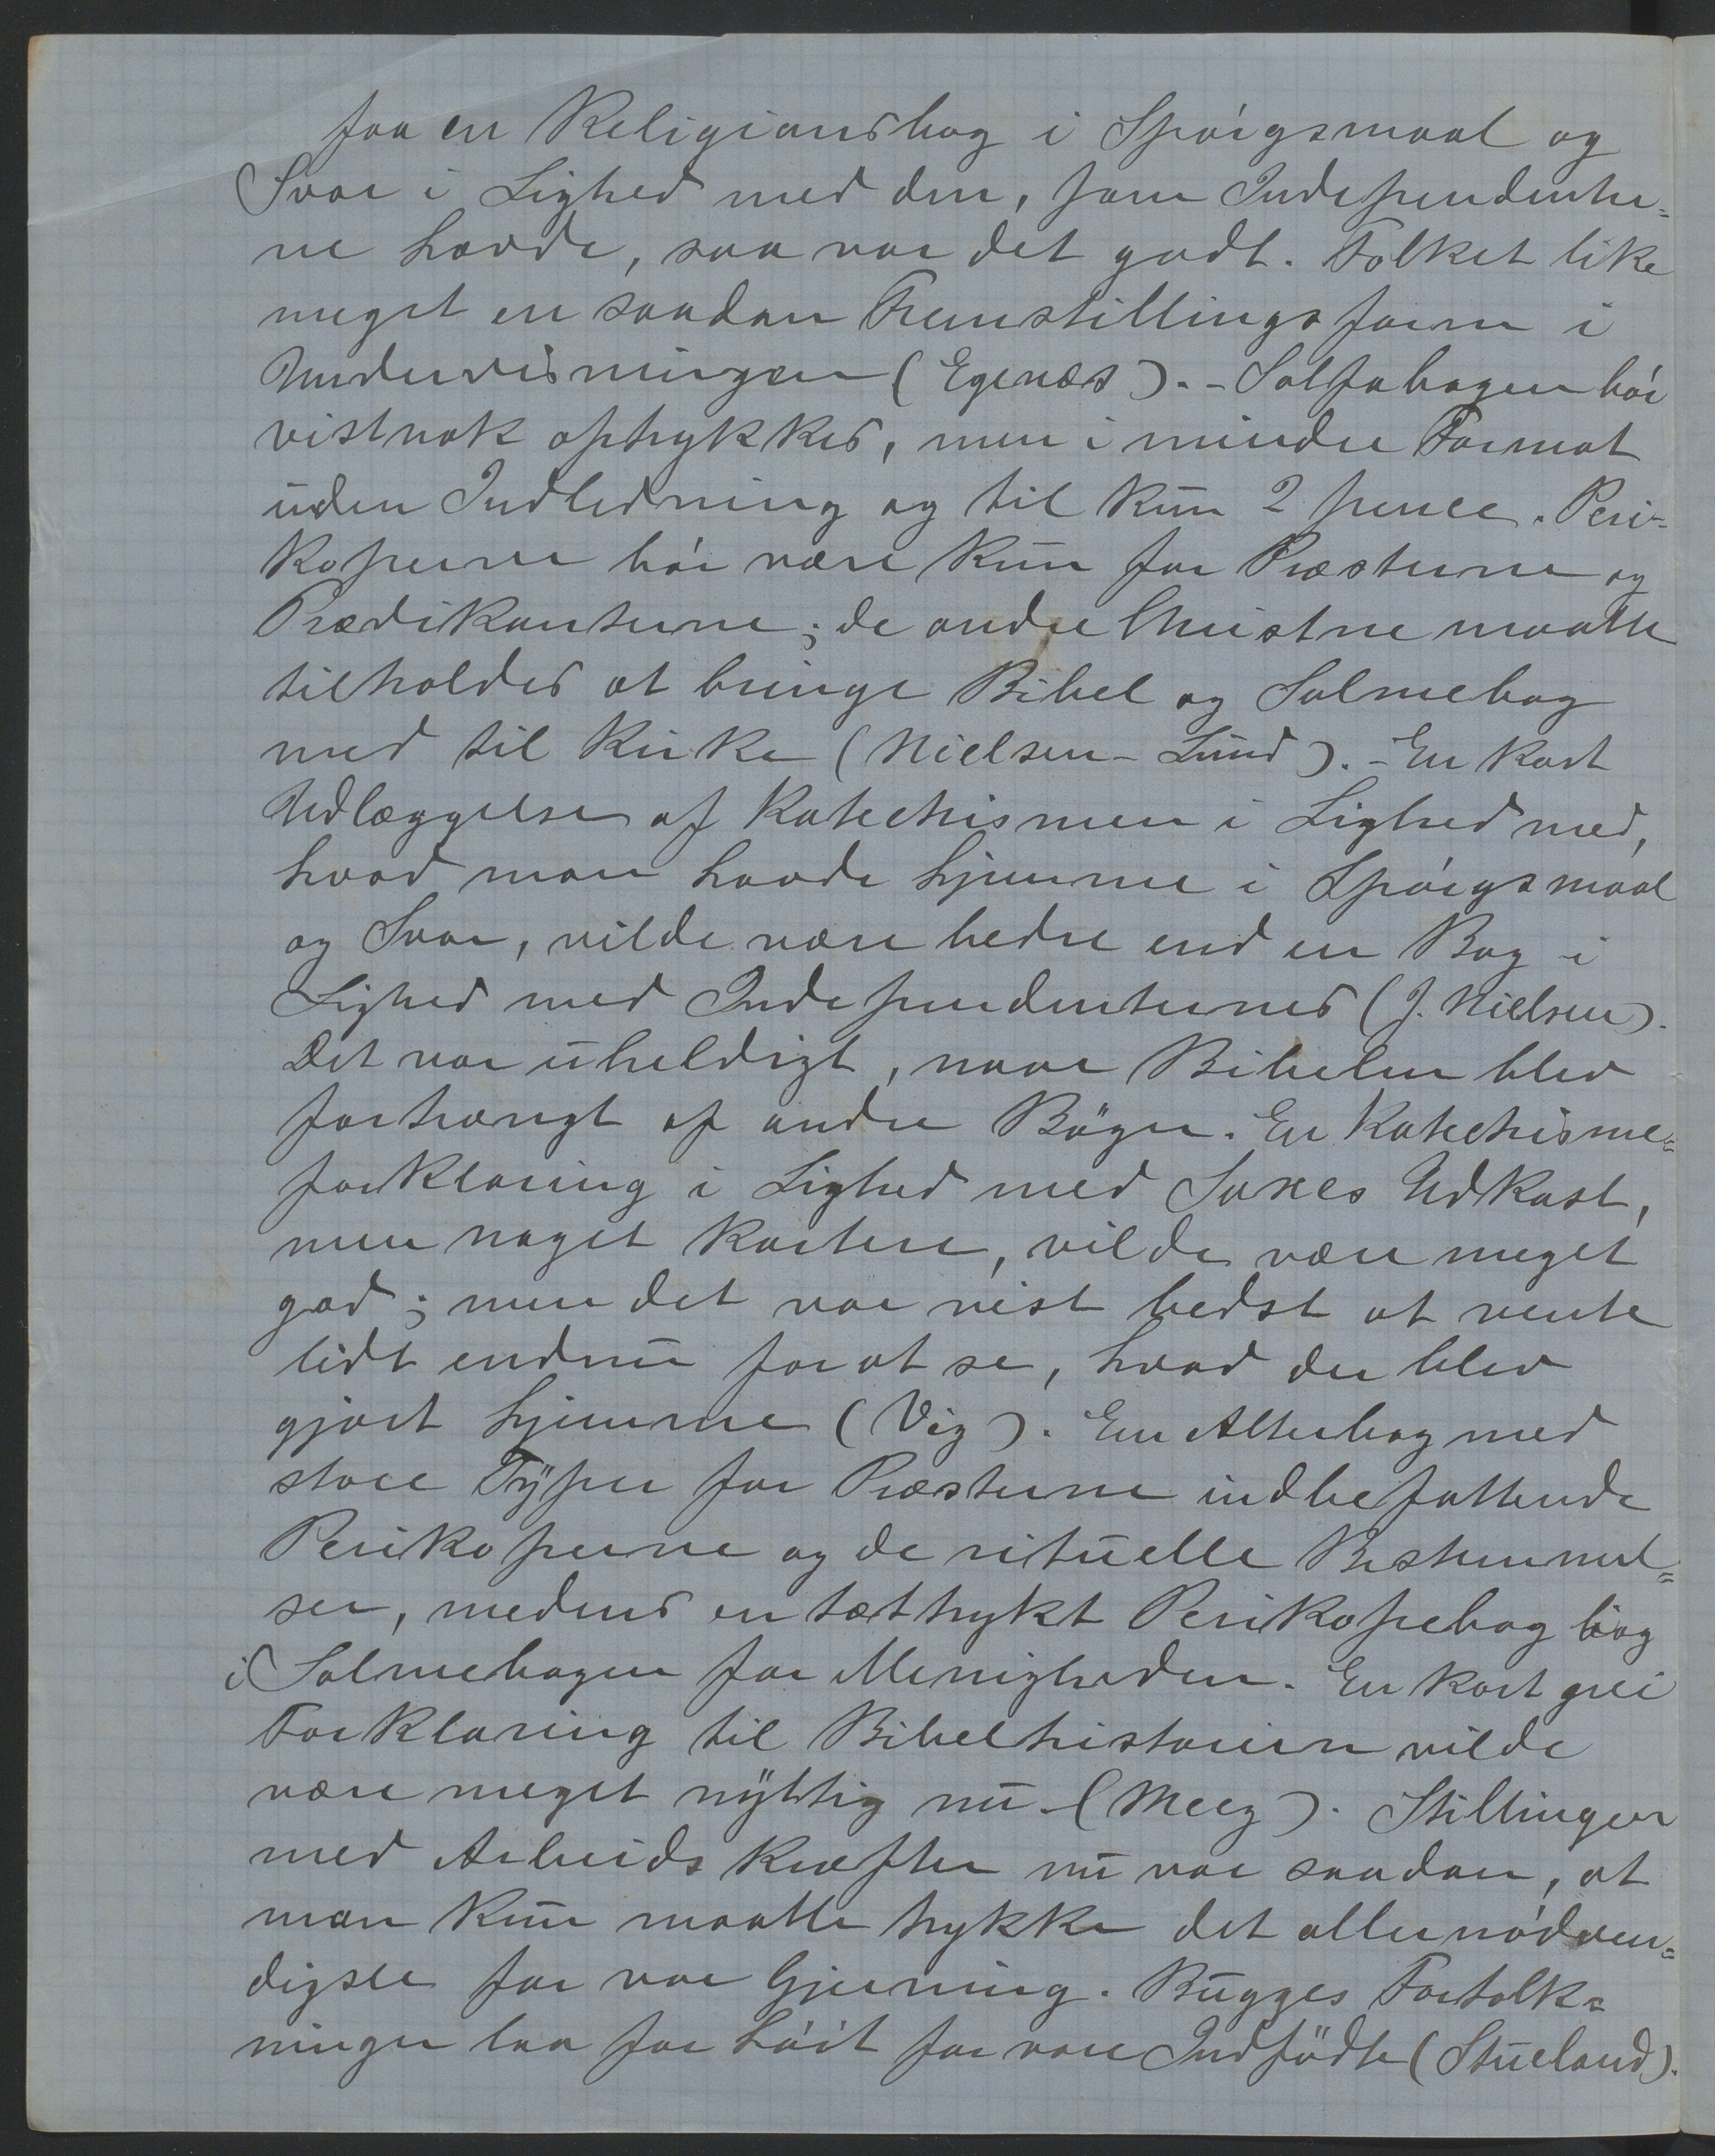 faa en Religionsbog i Spórgsmaal og
Svar i Lighed med den, som Independenter=
ne havde, saa var det godt. Folket like
meget en saadan Fremstillingsform i
Undervisningen (Egenæs). – Solfabogen bór
vistnok optrykkes, men i mindre Format
uden Indledning og til kun 2 pence. Peri=
koperne bór være kun for Præsterne og
Prædikanterne; de andre Christne maatte
tilholdes at bringe Bibel og Salmebog
med til Kirke (Nielsen-Lund). – En kort
Udlæggelse af Katechismen i Lighed med,
hvad man havde hjemme i Spórgsmaal
og Svar, vilde være bedre end en Bog i
Lighed med Independenternes (J. Nielsen).
Det var uheldigt, naar Bibelen blev
fortrængt af andre Böger. En Katechisme=
forklaring i Lighed med Saxes Udkast,
men noget kortere, vilde være meget
god; men det var vist bedst at vente
lidt endnu for at se, hvad der blev
gjort hjemme (Vig). En Alterbog med
store Typer for Præsterne indbefattende
Perikoperne og de rituelle Bestemmel=
ser, medens en tæt trykt Perikopebog bag
i Salmebogen for Menigheden. En kort grei
Forklaring til Bibelhistorien vilde
være meget nyttig nu – (Meeg). Stillingen
med Arbeidskræfter nu var saadan, at
man kun maatte trykke det allernódven=
digste for vor Gjerning. Bugges Fortolk=
ninger laa for hóit for vore Indfödte (Stueland).